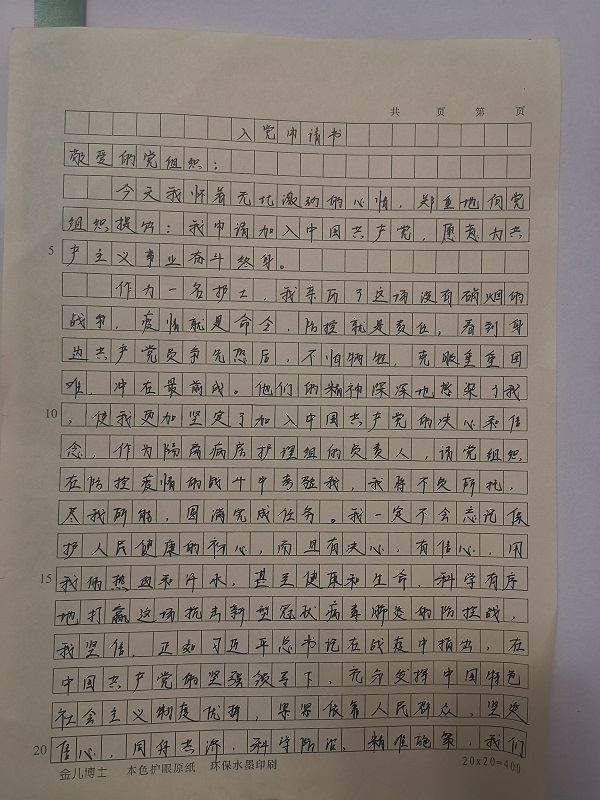 共 页 第 页
入党申请书
敬爱的党组织：
今天我怀着无比激动的心情，郑重地向党
组织提出：我申请加入中国共产党，愿意为共
5 产主义事业奋斗终身。
作为一名护士，我亲历了这场没有硝烟的
战争，疫情就是命令，防控就是责任，看到身
边共产党员争先恐后，不怕牺牲，克服重重困
难，冲在最前线。他们的精神深深地感染了我
10 ，使我更加坚定了加入中国共产党的决心和信
念，作为隔离病房护理组的负责人，请党组织
在防控疫情的战斗中考验我，我将不负所托，
尽我所能，圆满完成任务。我一定不会忘记保
护人民健康的初心，而且有决心，有信心，用
15 我俩热血和汗水，甚至健康和生命，科学有序
地打赢这场抗击新型冠状病毒肺炎的防控战，
我坚信，正如习近平总书记在战疫中指出，在
中国共产党的坚强领导下，充分发挥中国特色
社会主义制度优势，紧紧依靠人民群众，坚定
20 信心，同舟共济，科学防治，精准施策，我们
金儿博士 本色护眼原纸 环保水墨印刷 20×20=400